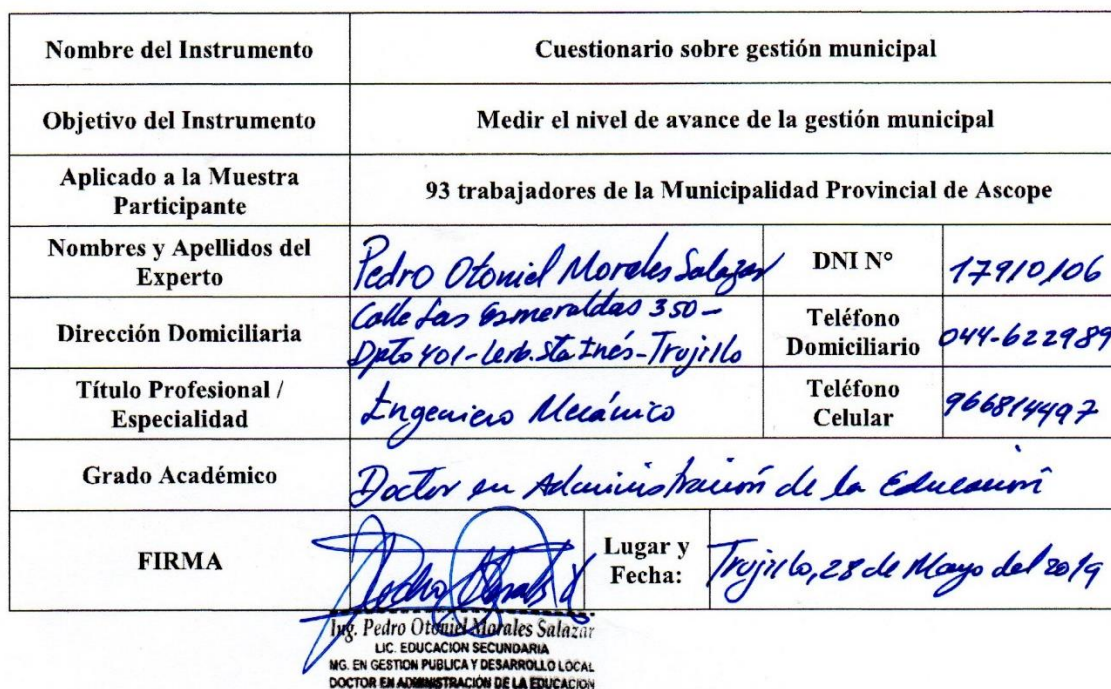 Nombre del Instrumento
Cuestionario sobre gestión municipal
Objetivo del Instrumento
Medir el nivel de avance de la gestión municipal
Aplicado a la Muestra
Participante
93 trabajadores de la Municipalidad Provincial de Ascope
Nombres y Apellidos del
Experto
Pedro Otoniel Morales Salazar
DNI N°
17910106
Dirección Domiciliaria
Calle Las Esmeraldas 350-
Dpto 401-Urb. Sta Inés-Trujillo
Teléfono
Domiciliario
044-622989
Título Profesional /
Especialidad
Ingeniero Mecánico
Teléfono
Celular
966814497
Grado Académico
Doctor en Administración de la Educación
FIRMA
Pedro Morales
Lugar y
Fecha:
Trujillo, 28 de Mayo del 2019
Ing. Pedro Otoniel Morales Salazar
LIC. EDUCACION SECUNDARIA
MG. EN GESTION PUBLICA Y DESARROLLO LOCAL
DOCTOR EN ADMINISTRACIÓN DE LA EDUCACION